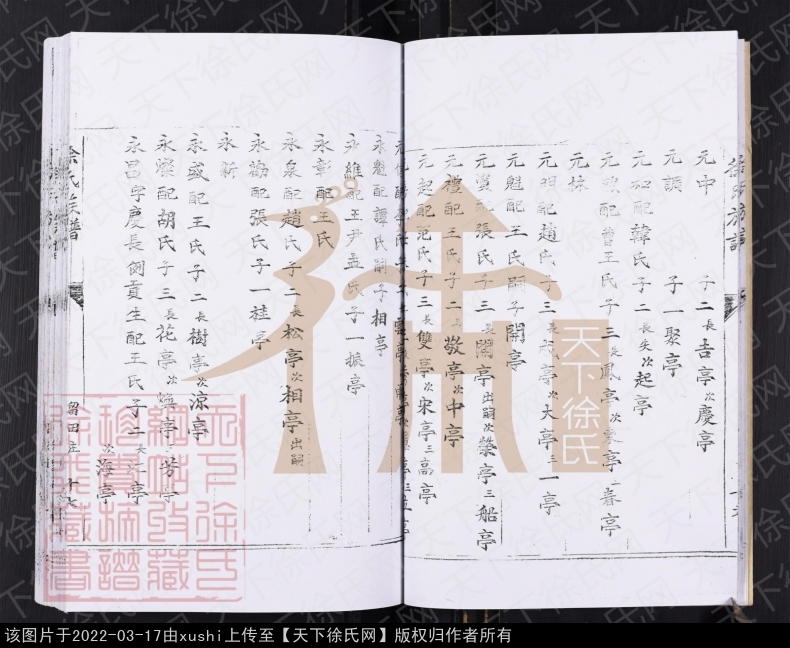 徐氏族譜
元中 子二長吉亭次慶亭
元調 子一聚亭
元 配韓氏子二長失次起亭
元 配曾王氏子三長鳳亭次 亭 春亭
元
元 配趙氏子三 亭次大亭三一亭
元魁配王氏嗣子開亭
元 配張氏子三長閣亭出嗣次榮亭三船亭
元禮配王氏子二長敬亭次中亭
元起配范氏子三長雙亭次宋亭三高亭
永魁配譚氏嗣子相亭
永維配王尹孟氏子一振亭
永彰配王氏
永泉配趙氏子二長松亭次相亭出嗣
永勤配張氏子一桂亭
永新
永盛配王氏子二長樹亭次涼亭
永燦配胡氏子三長花亭次 亭 芳亭
永昌字慶長例貢生配王氏子二長江亭次海亭
徐氏族譜
留田庄
天下徐氏
天下徐氏网
该图片于2022-03-17由xushi上传至【天下徐氏网】版权归作者所有